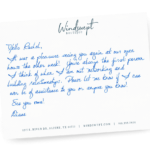 Windswept
Hello David,
It was a pleasure seeing you again at our open
house the other week! You're always the first person
I think of when I am out networking and
building relationships. Please let me know if I can
be of assistance to you or anyone you know!
See you soon!